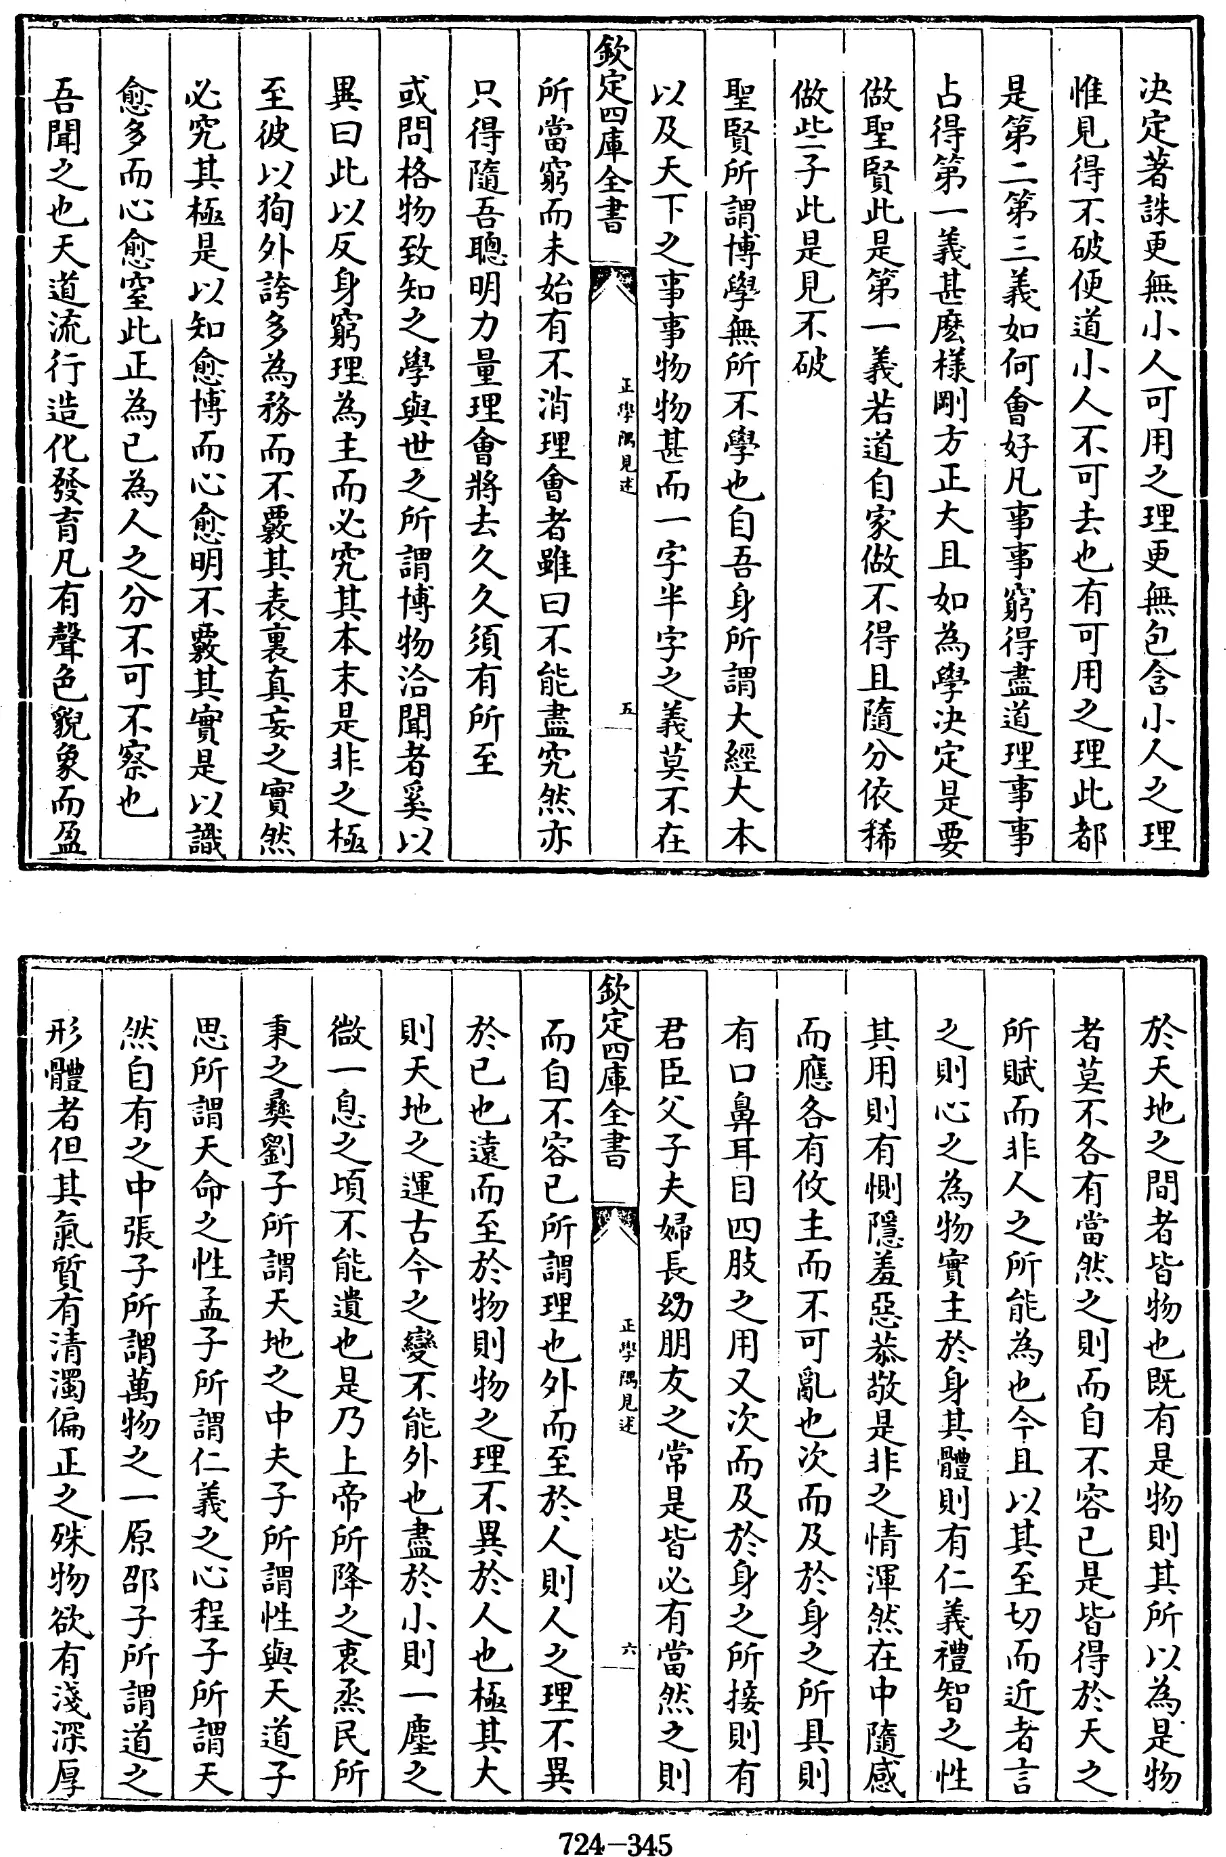 決定著誅更無小人可用之理更無包含小人之理
惟見得不破便道小人不可去也有可用之理此都
是第二第三義如何會好凡事事窮得盡道理事事
占得第一義甚麽樣剛方正大且如為學決定是要
做聖賢此是第一義若道自家做不得且隨分依稀
做些子此是見不破
聖賢所謂博學無所不學也自吾身所謂大經大本
以及天下之事事物物甚而一字半字之義莫不在
欽定四庫全書
正學隅見述
五
所當窮而未始有不消理會者雖曰不能盡究然亦
只得隨吾聰明力量理會將去久久須有所至
或問格物致知之學與世之所謂博物洽聞者奚以
異曰此以反身窮理為主而必究其本末是非之極
至彼以狥外誇多為務而不覈其表裏真妄之實然
必究其極是以知愈博而心愈明不覈其實是以識
愈多而心愈窒此正為已為人之分不可不察也
吾聞之也天道流行造化發育凡有聲色貌象而盈
於天地之間者皆物也既有是物則其所以為是物
者莫不各有當然之則而自不容已是皆得於天之
所賦而非人之所能為也今且以其至切而近者言
之則心之為物實主於身其體則有仁義禮智之性
其用則有惻隱羞惡恭敬是非之情渾然在中隨感
而應各有攸主而不可亂也次而及於身之所具則
有口鼻耳目四肢之用又次而及於身之所接則有
君臣父子夫婦長幼朋友之常是皆必有當然之則
欽定四庫全書
正學隅見述
六
而自不容已所謂理也外而至於人則人之理不異
於已也遠而至於物則物之理不異於人也極其大
則天地之運古今之變不能外也盡於小則一塵之
微一息之頃不能遺也是乃上帝所降之衷烝民所
秉之彝劉子所謂天地之中夫子所謂性與天道子
思所謂天命之性孟子所謂仁義之心程子所謂天
然自有之中張子所謂萬物之一原邵子所謂道之
形體者但其氣質有清濁偏正之殊物欲有淺深厚
724-345